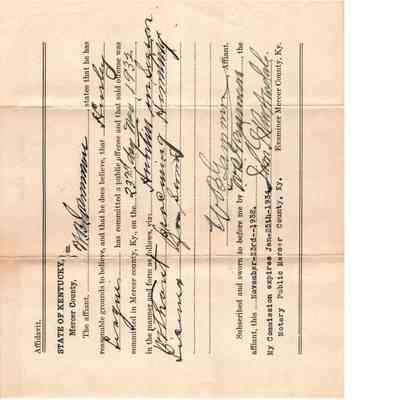 Affidavit.
STATE OF KENTUCKY,
Mercer County, } ss.
The affiant, W B Gammon states that he has
reasonable grounds to believe, and that he does believe, that
has committed a public offense and that said offense was
committed in Mercer county, Ky., on the 23rd day Nov 1932
in the manner and form as follows, viz: Hunting in season
Without Procuring Hunting
License
W B Gammon Affiant.
Subscribed and sworn to before me by W B Gammon, the
affiant, this November-23rd--1932.
My Commission expires Jan-25th-1934
Examiner Mercer County, Ky.
Notary Public Mercer County, Ky.